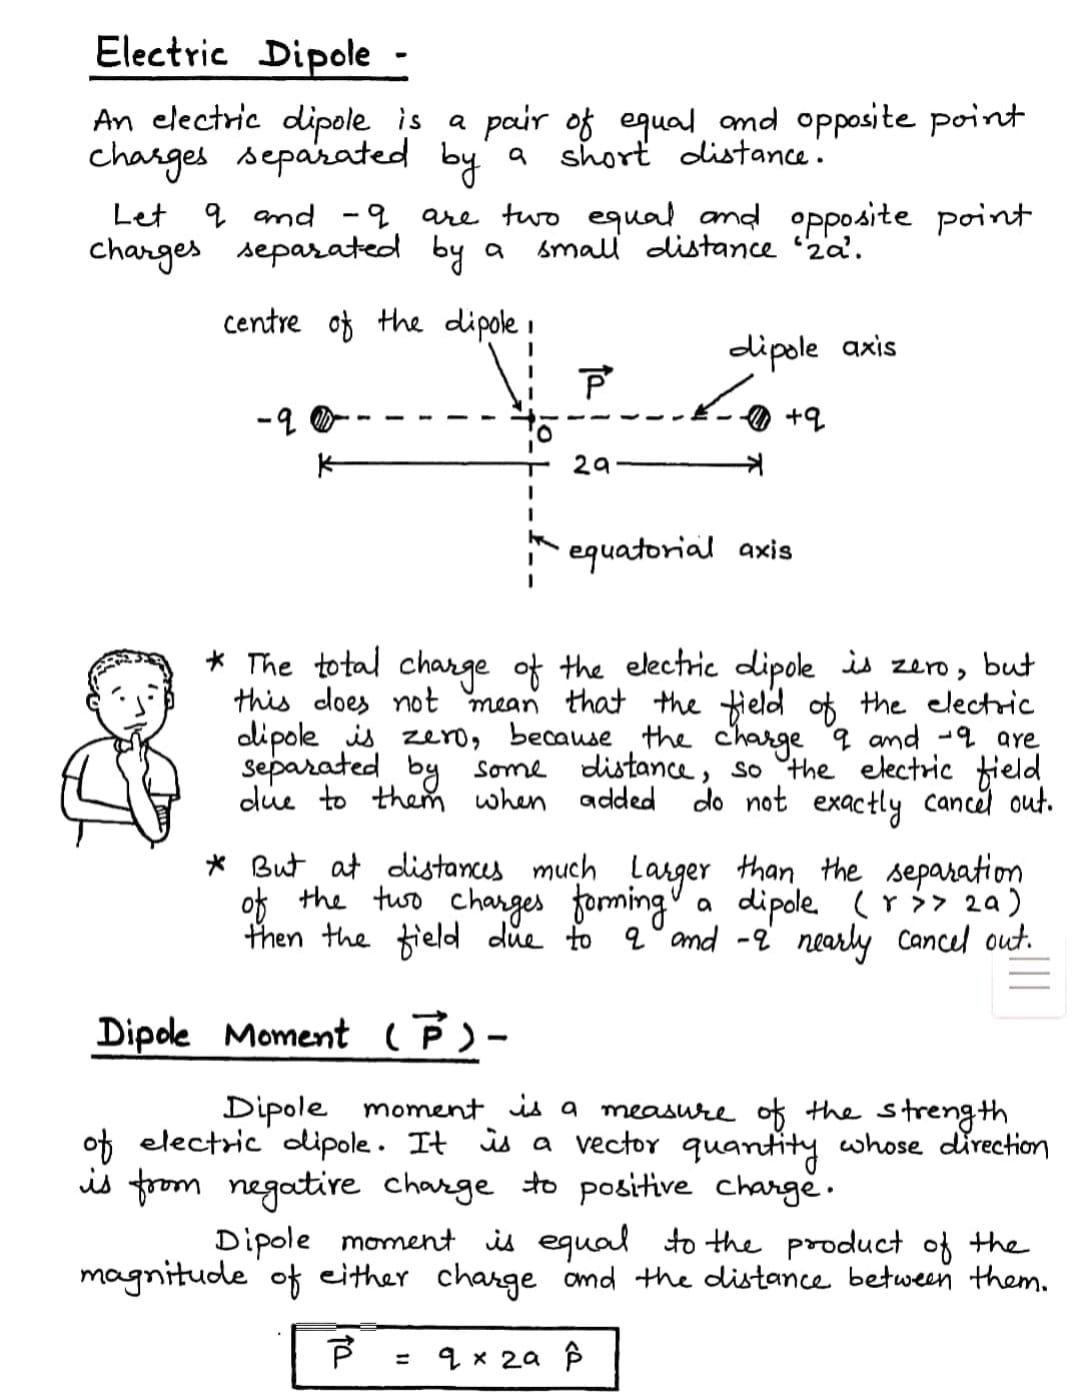 Electric Dipole -
An electric dipole is a pair of equal and opposite point
charges separated by a short distance.
Let q and -q are two equal and opposite point
charges separated by a small distance '2a'.
centre of the dipole
dipole axis
P⃗
-q
+q
O
2a
equatorial axis
* The total charge of the electric dipole is zero, but
this does not mean that the field of the electric
dipole is zero, because the charge q and -q are
separated by some distance, so the electric field
due to them when added do not exactly cancel out.
* But at distances much larger than the separation
of the two charges forming a dipole (r >> 2a)
then the field due to q and -q nearly cancel out.
Dipole Moment (P⃗) -
Dipole moment is a measure of the strength
of electric dipole. It is a vector quantity whose direction
is from negative charge to positive charge.
Dipole moment is equal to the product of the
magnitude of either charge and the distance between them.
P⃗ = q × 2a p̂